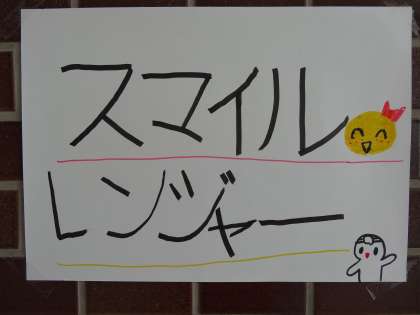 スマイル
レンジャー